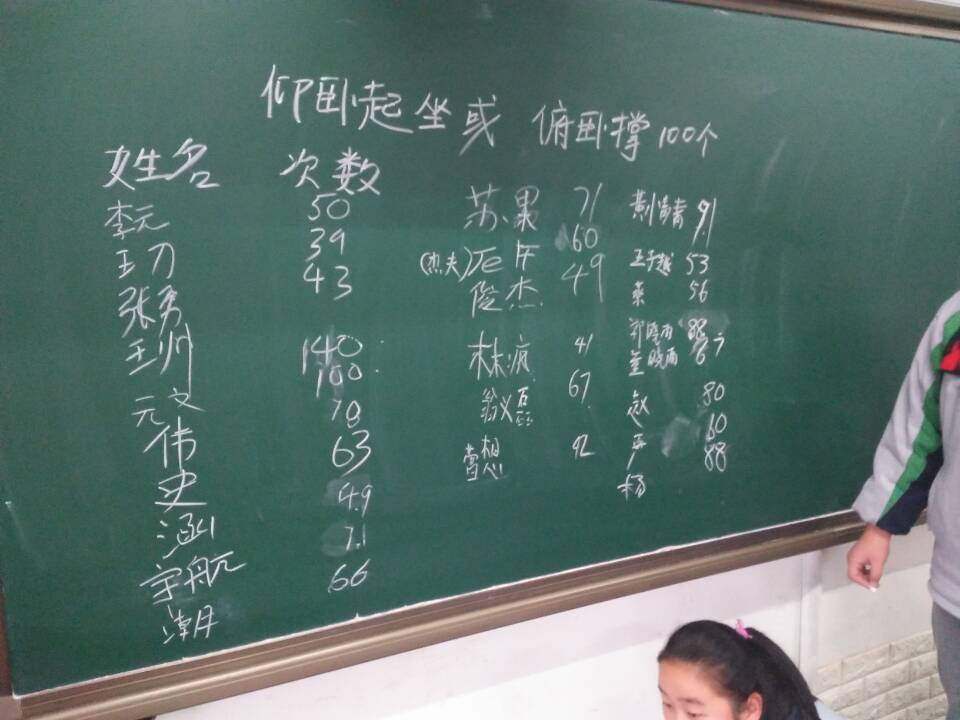 仰卧起坐或 俯卧撑100个
姓名 次数
李元 50
王刀 39
张勇 43
王帅 140
100
元文 78
伟 63
史 49
涵 71
宇航 66
潮
苏果 71
60
(杰夫)
俊杰 49
林疯 41
翁义 67
想 92
91
王子越 53
56
郑晓雨 88
晓雨 67
赵 80
严 60
杨 88